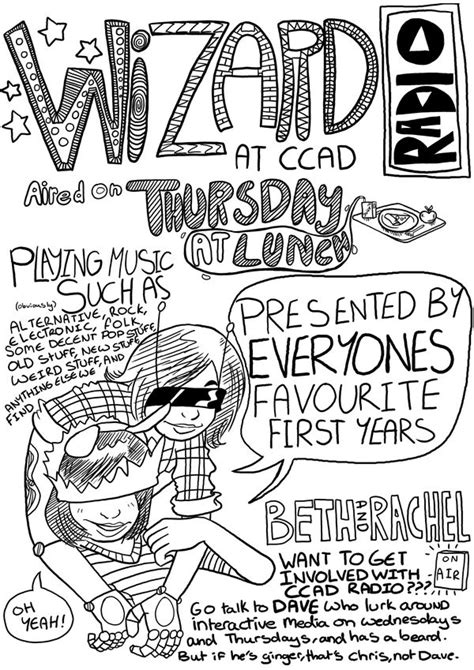 WIZARD
RADIO
AT CCAD
Aired on THURSDAY
AT LUNCH
PLAYING MUSIC
SUCH AS
(obviously)
ALTERNATIVE, ROCK,
ELECTRONIC, FOLK,
SOME DECENT POP STUFF,
OLD STUFF, NEW STUFF,
WEIRD STUFF, AND
ANYTHING ELSE WE
FIND
PRESENTED BY
EVERYONES
FAVOURITE
FIRST YEARS
BETH AND RACHEL
WANT TO GET
INVOLVED WITH
CCAD RADIO???
ON
AIR
OH
YEAH!
Go talk to DAVE who lurk around
interactive Media on wednesdays
and Thursdays, and has a beard.
But if he's ginger, that's Chris, not Dave.